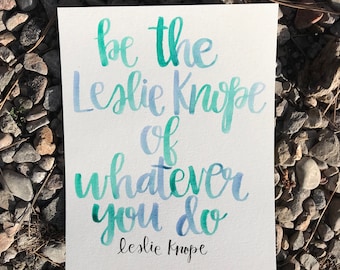 be the
Leslie Knope
of
whatever
you do
leslie knope